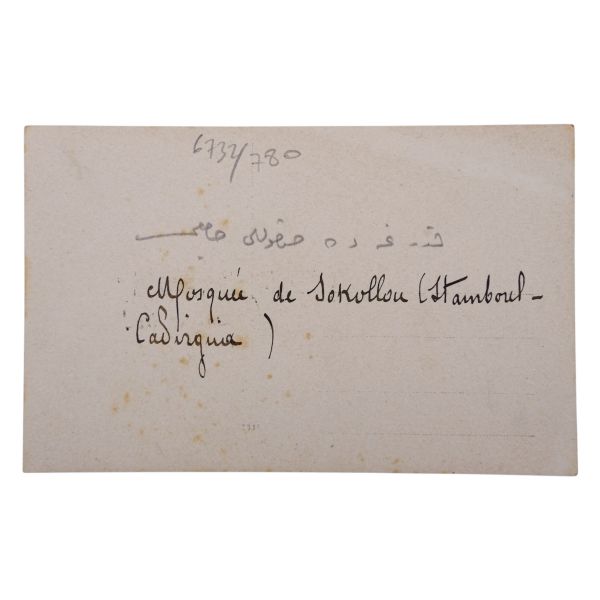 6732/780
قدرغه ده صقوللی جامعی
Mosquée de Sokollou (Stamboul-
Cadirguia)